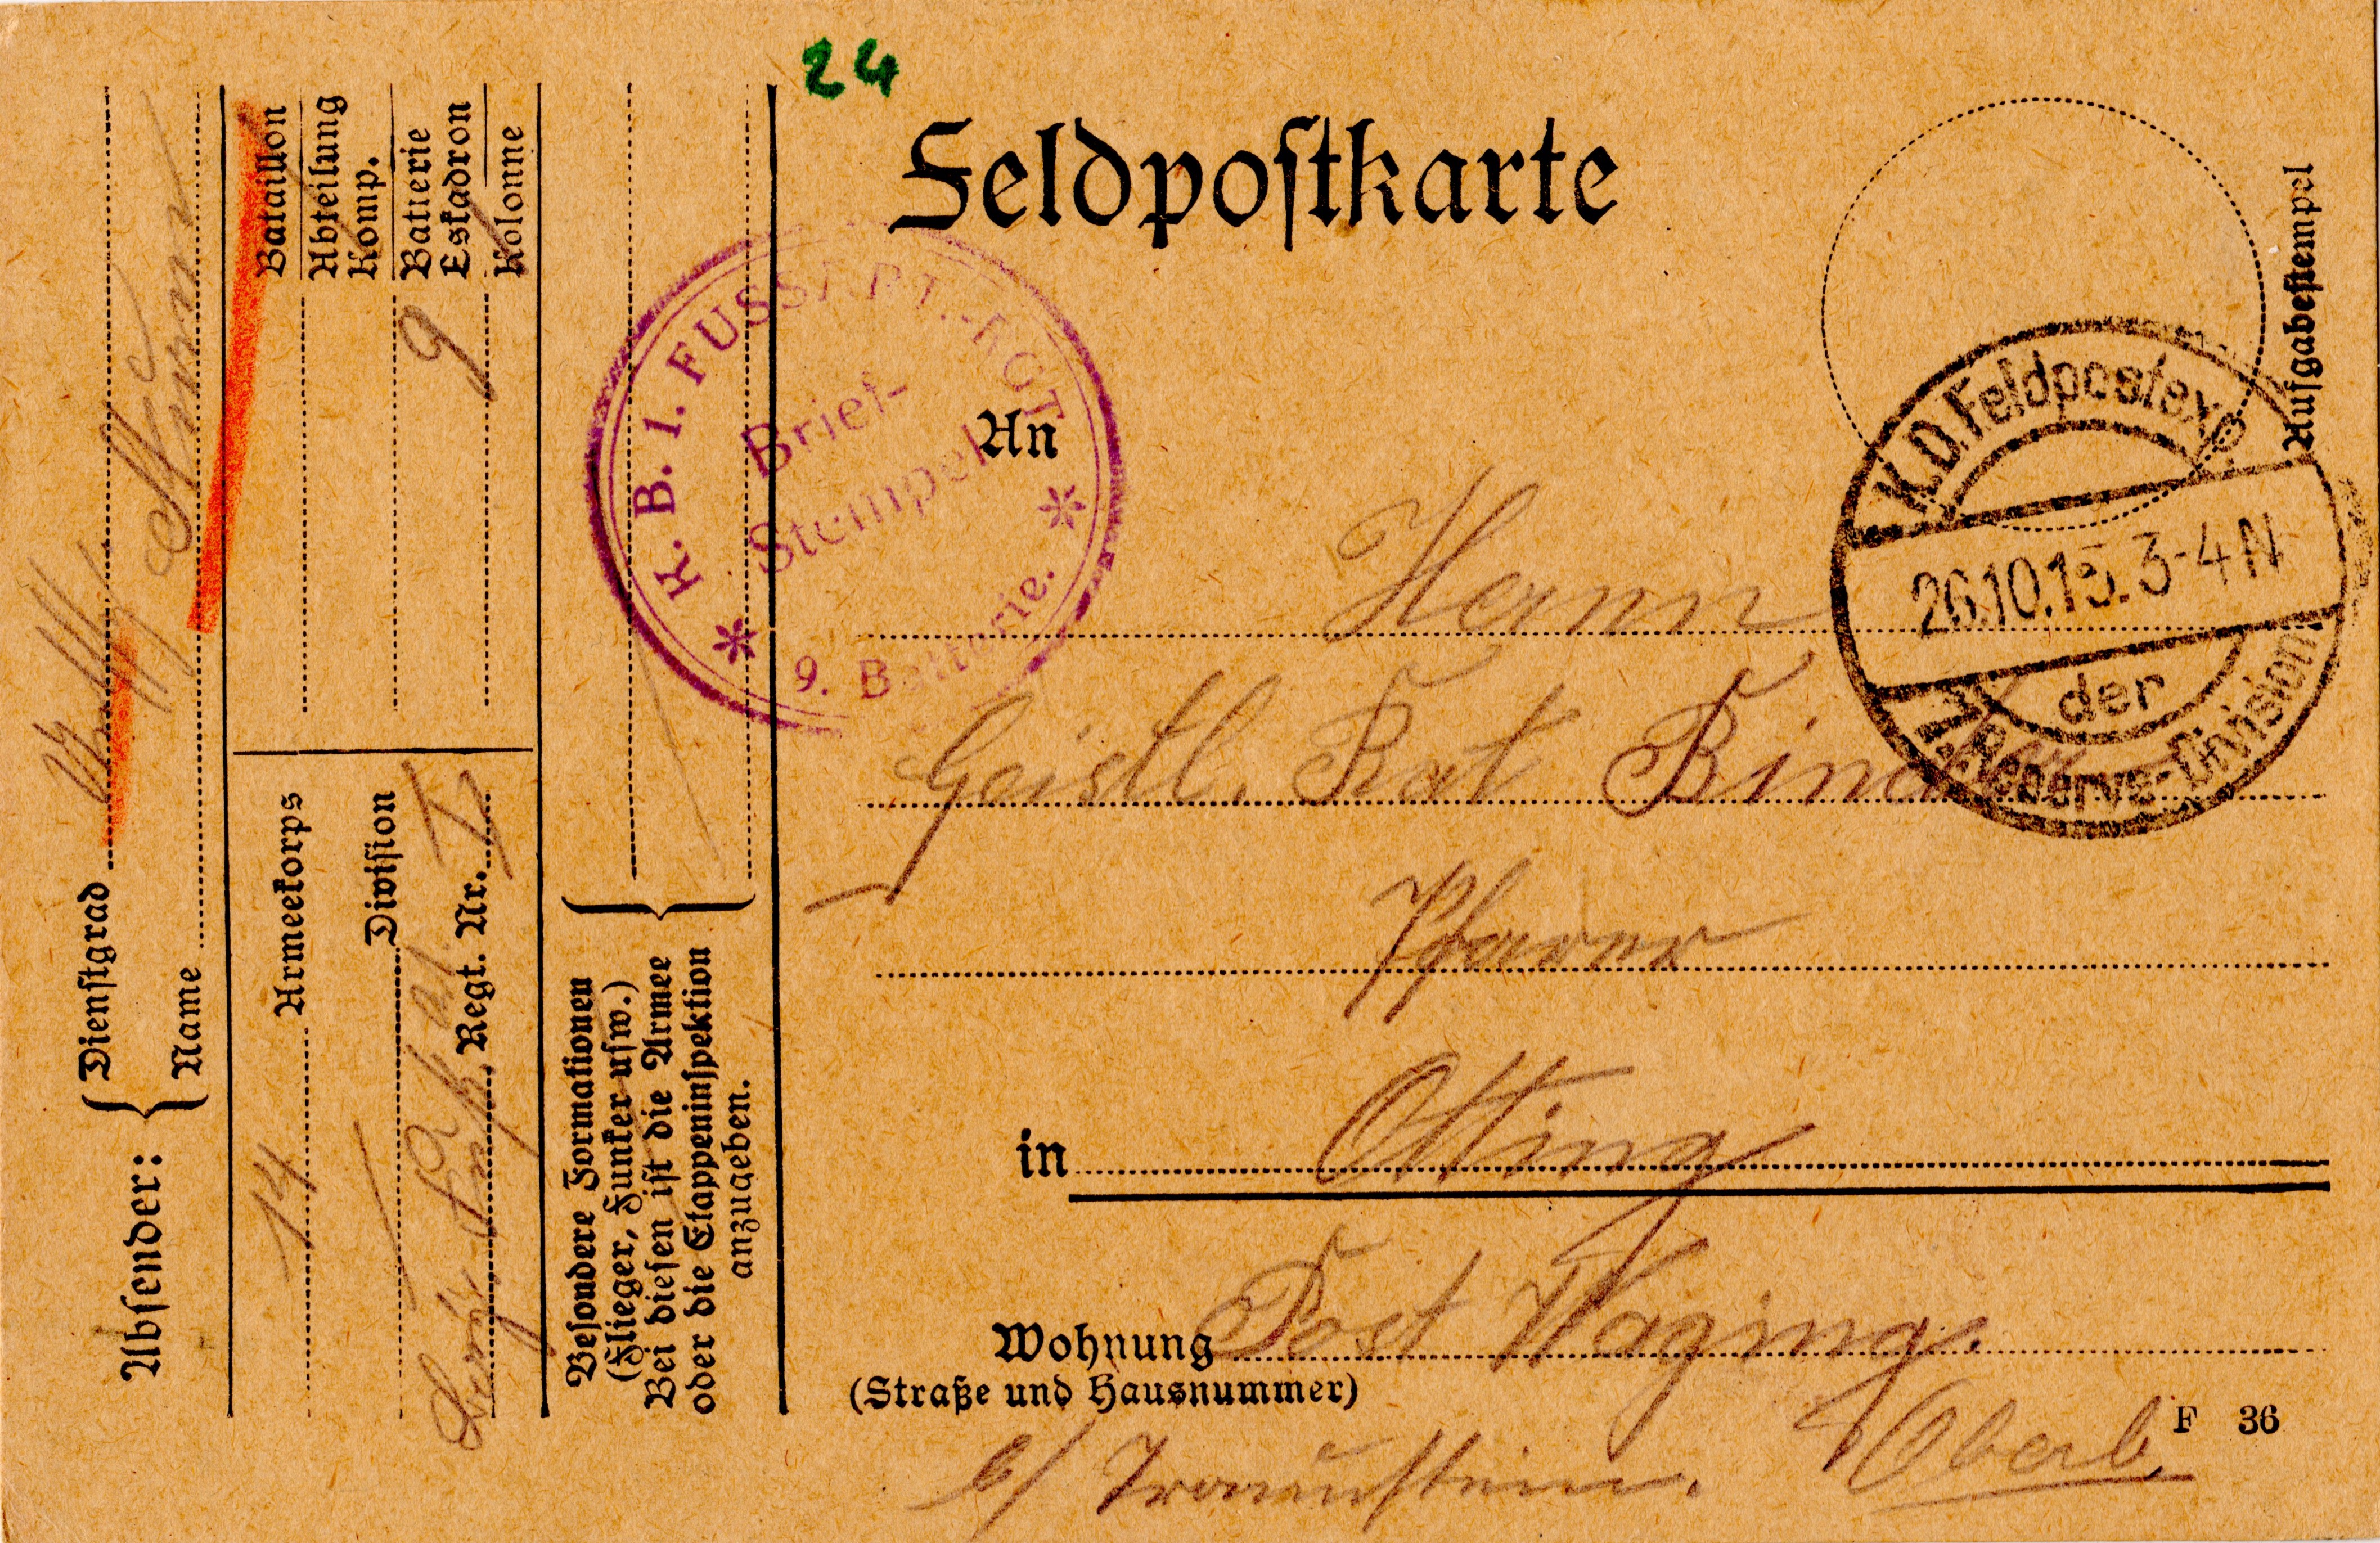 24
Feldpostkarte
Aufgabestempel
K.D. Feldpostexp.
26.10.15. 3-4 N
der
Reserve-Division
K. B. 1. FUSSART.-RGT.
Brief-
Stempel
9. Batterie.
An
Herrn
Geistl. Rat
Pfarrer
in Otting
Wohnung Post Waging.
(Straße und Hausnummer)
b/ Traunstein. Oberb.
F 36
Absender:
Dienstgrad
Name
Bataillon
Abteilung
Komp.
Batterie
Eskadron
Kolonne
9
14 Armeekorps
Division
Regt. Nr. I
Besondere Formationen
(Flieger, Funker usw.)
Bei diesen ist die Armee
oder die Etappeninspektion
anzugeben.